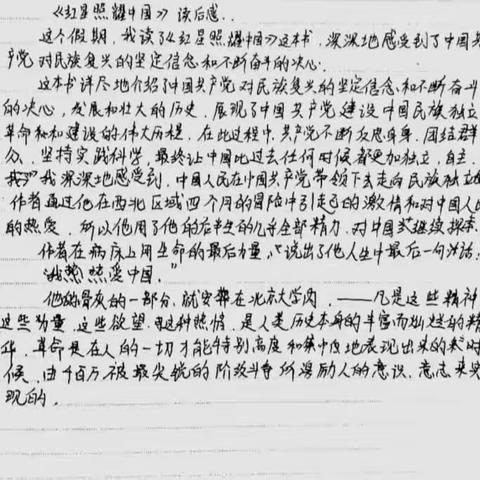 《红星照耀中国》读后感..
这个假期,我读了《红星照耀中国》这本书,深深地感受到了中国共
产党对民族复兴的坚定信念和不断奋斗的决心.
这本书详尽地介绍了中国共产党对民族复兴的坚定信念和不断奋斗
的决心,发展和壮大的历史.展现了中国共产党建设中国民族独立
革命和和建设的伟大历程.在此过程中,共产党不断反思自身,团结群
众、坚持实践科学,最终让中国比过去任何时候都更加独立、自主.
我深深地感受到,中国人民在中国共产党带领下去走向民族独立的
作者通过他在西北区域四个月的冒险中引起的激情和对中国人民
的热爱,所以他用了他的后半生的几乎全部精力,对中国继续探索.
作者在病床上用生命的最后力量,说出了他人生中最后一句话:
"我热爱中国."
他的骨灰的一部分,就安葬在北京大学内,——凡是这些精神
这些力量,这些欲望,这种热情,是人类历史本身的丰富而灿烂的精
华,革命是在人的一切才能特别高度和集中地表现出来的时
候,由千百万被最尖锐的阶级斗争所激励人的意识、意志来实
现的.